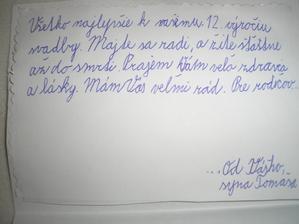 Všetko najlepšie k vašemu 12. výročiu
svadby. Majte sa radi, a žite šťastne
až do smrti. Prajem Vám veľa zdravia
a lásky. Mám Vás veľmi rád. Pre rodičov.
...Od Vášho,
syna Tomáša